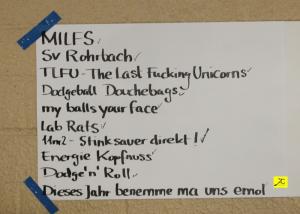 MILFS
SV Rohrbach
TLFU - The Last Fucking Unicorns
Dodgeball Douchebags
my balls your face
Lab Rats
11m2 - Stinksauer direkt!
Energie Kopfnuss
Dodge'n'Roll
Dieses Jahr benemme ma uns emol